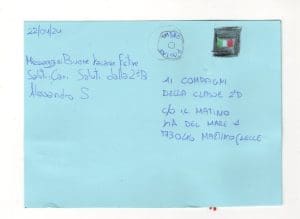 22/04/24
Messaggio: Buone vacanze Felice
Saluti Cari. Saluti dalla 2ªB
Alessandro S.
AI COMPAGNI
DELLA CLASSE 2ªD
C/O IL MATINO
VIA DEL MARE
73046 MATINO (LECCE